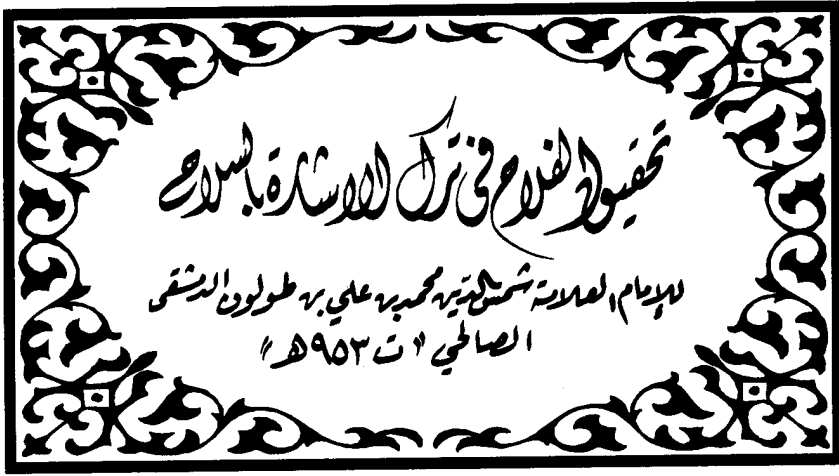 تحقيق الفلاح في ترك الإشارة بالسلاح
للإمام العلامة شمس الدين محمد بن علي بن طولون الدمشقي
الصالحي «ت ٩٥٣هـ»